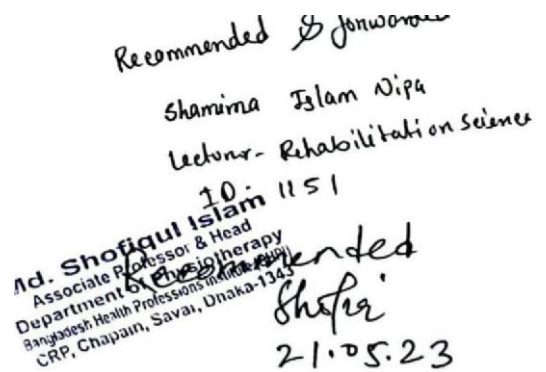 Recommended & forwarded
Shamima Islam Nipa
Lecturer- Rehabilitation Science
ID: 1151
Md. Shofiqul Islam
Associate Professor & Head
Department of Physiotherapy
Bangladesh Health Professions Institute (BHPI)
CRP, Chapain, Savar, Dhaka-1343
Recommended
Shofiq
21.05.23